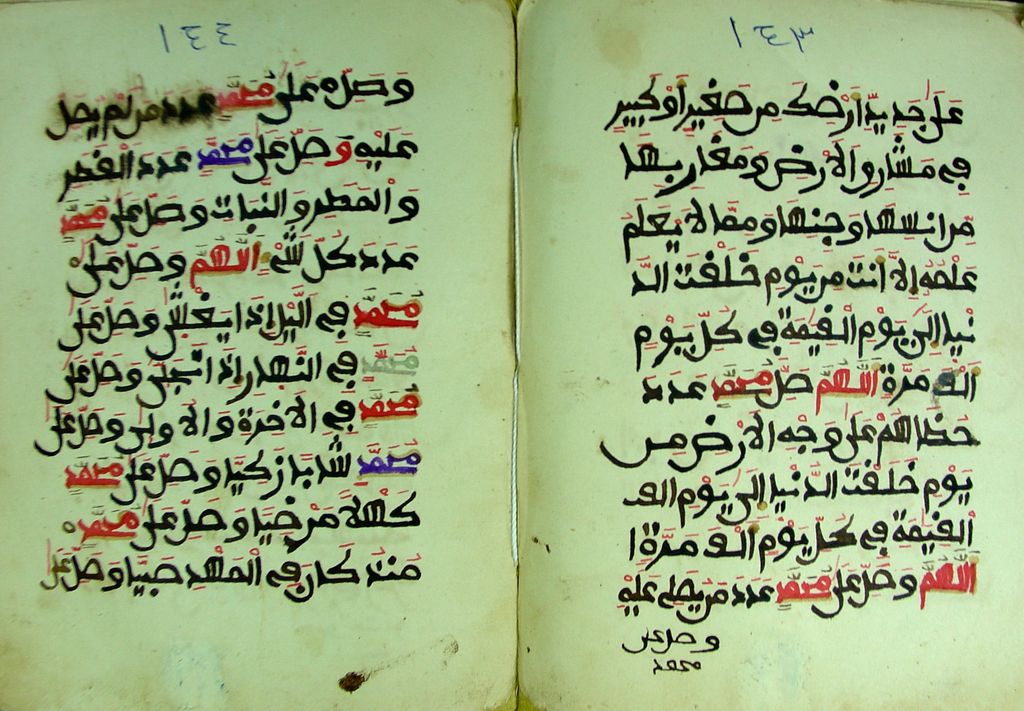 ١٤٣
على جديد ارضك من صغير اوكبير
في مشارق الارض ومغاربها
من انسها وجنها ومما لا يعلم
علمه الا انت من يوم خلقت الد
نيا الى يوم القيمة في كل يوم
الف مرة اللهم صل محمد عدد
خطاهم على وجه الارض من
يوم خلقت الدنيا الى يوم الف
القيمة في كل يوم الف مرة ا
اللهم وصل على محمد عدد من يصلي عليه
وصل على
محمد
١٤٤
وصل على محمد عدد من لم يصل
عليه وصل على محمد عدد القطر
والمطر والنبات وصل على محمد
عدد كل شيء اللهم وصل على
محمد في اليل اذا يغشى وصل على
محمد في النهار اذا تجلى وصل على
محمد في الاخرة والاولى وصل على
محمد شابا زكيا وصل على محمد
كهلا مرضيا وصل على محمد
منذ كان في المهد صبيا وصل على